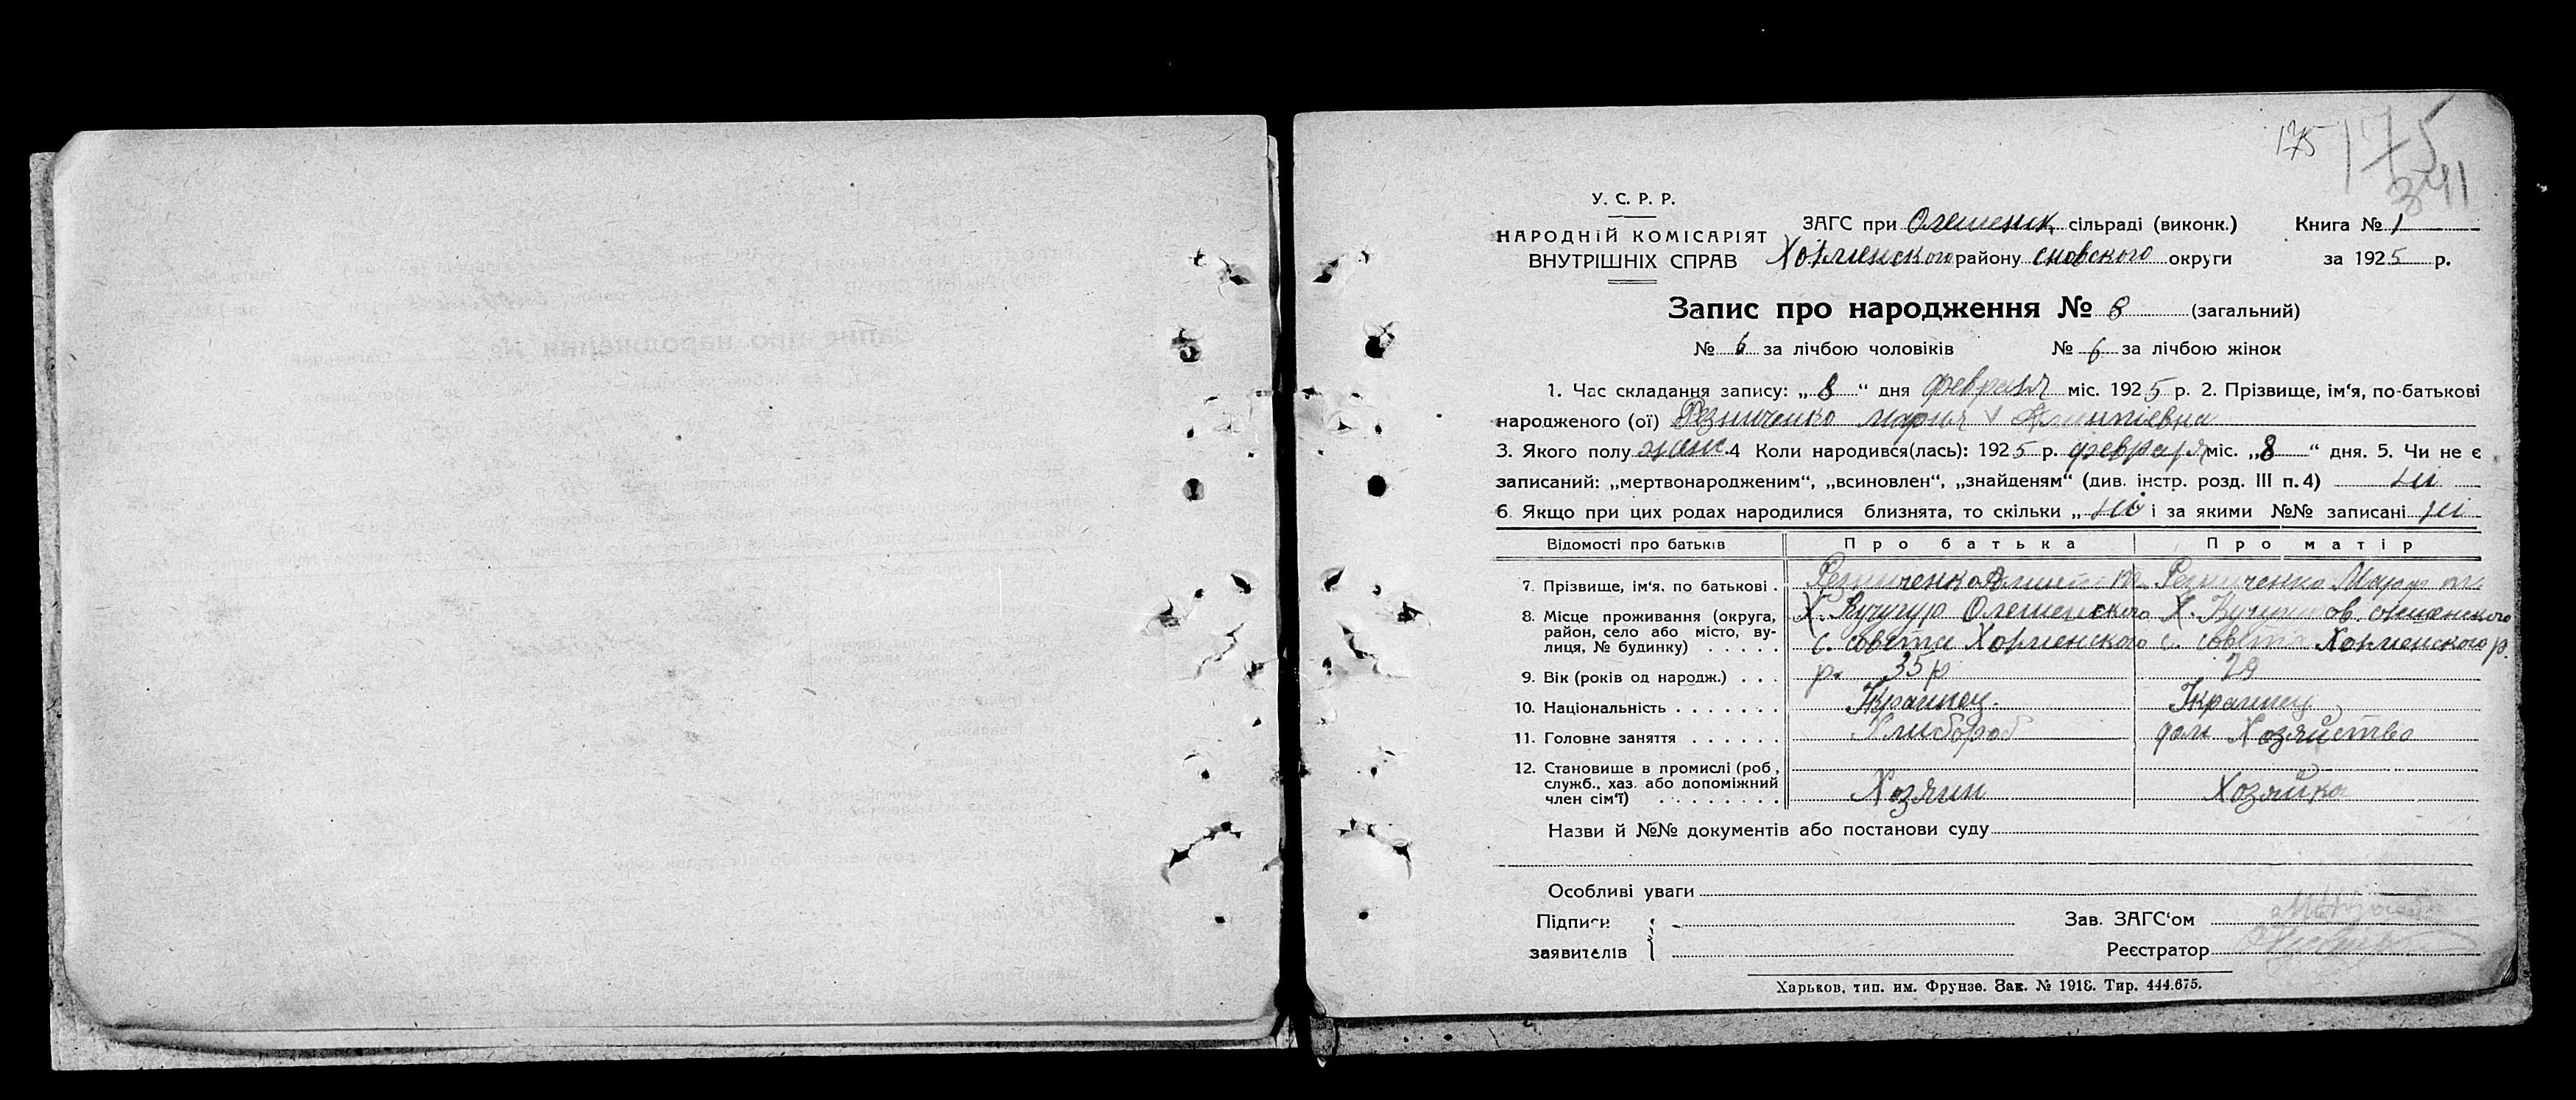 175 175
341
У. С. Р. Р.
НАРОДНІЙ КОМІСАРІЯТ
ВНУТРІШНІХ СПРАВ
ЗАГС при Олешенск. сільраді (виконк.) Книга № 1
Хотменского району сновского округи за 1925 р.
Запис про народження № 8 (загальний)
№ 6 за лічбою чоловіків № 6 за лічбою жінок
1. Час складання запису: „ 8 “ дня февраля міс. 1925 р. 2. Прізвище, ім‘я, по-батькові
народженого (ої) Резниченко мария
3. Якого полу женс. 4 Коли народився(лась): 1925 р. февраля міс. „8 “ дня. 5. Чи не є
записаний: „мертвонародженим“, „всиновлен“, „знайденям“ (див. інстр. розд. III п. 4) ні
6. Якщо при цих родах народилися близнята, то скільки „ ні і за якими №№ записані ні
Відомості про батьків Про батька Про матір
7. Прізвище, ім‘я. по батькові . Резниченко Резниченко
8. Місце проживання (округа, район, село або місто, вулиця, № будинку) . . . . .
Х. Кучугур Олешенского Х.
с. совета с. совета
9. Вік (років од народж.) . . . р. 35 р 29
10. Національність . . . . . . . Украинец Украинец
11. Головне заняття . . . . . . Хлибороб дом Хозяйство
12. Становище в промислі (роб., служб., хаз. або допоміжний член сім‘ї) . . . . . . . . Хозяин Хозяйка
Назви й №№ документів або постанови суду
Особливі уваги
Підписи Зав. ЗАГС‘ом
заявителів Реєстратор
Харьков, тип. им. Фрунзе. Зак. № 1918. Тир. 444.675.